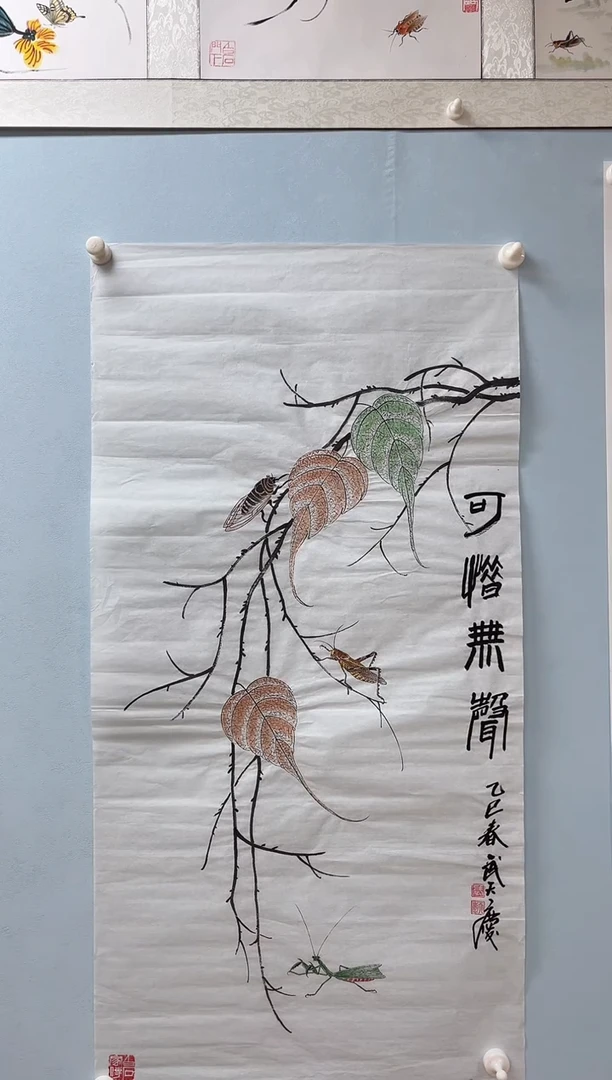 可惜無聲
乙巳春武大慶